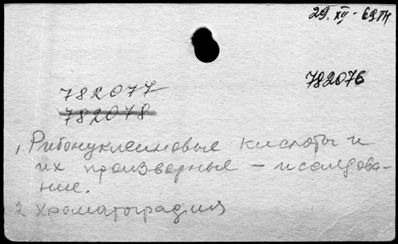 29.XII-69 гн
782076
782077
782078
1. Рибонуклеиновые кислоты и
их производные - исследова-
ние.
2. Хроматография